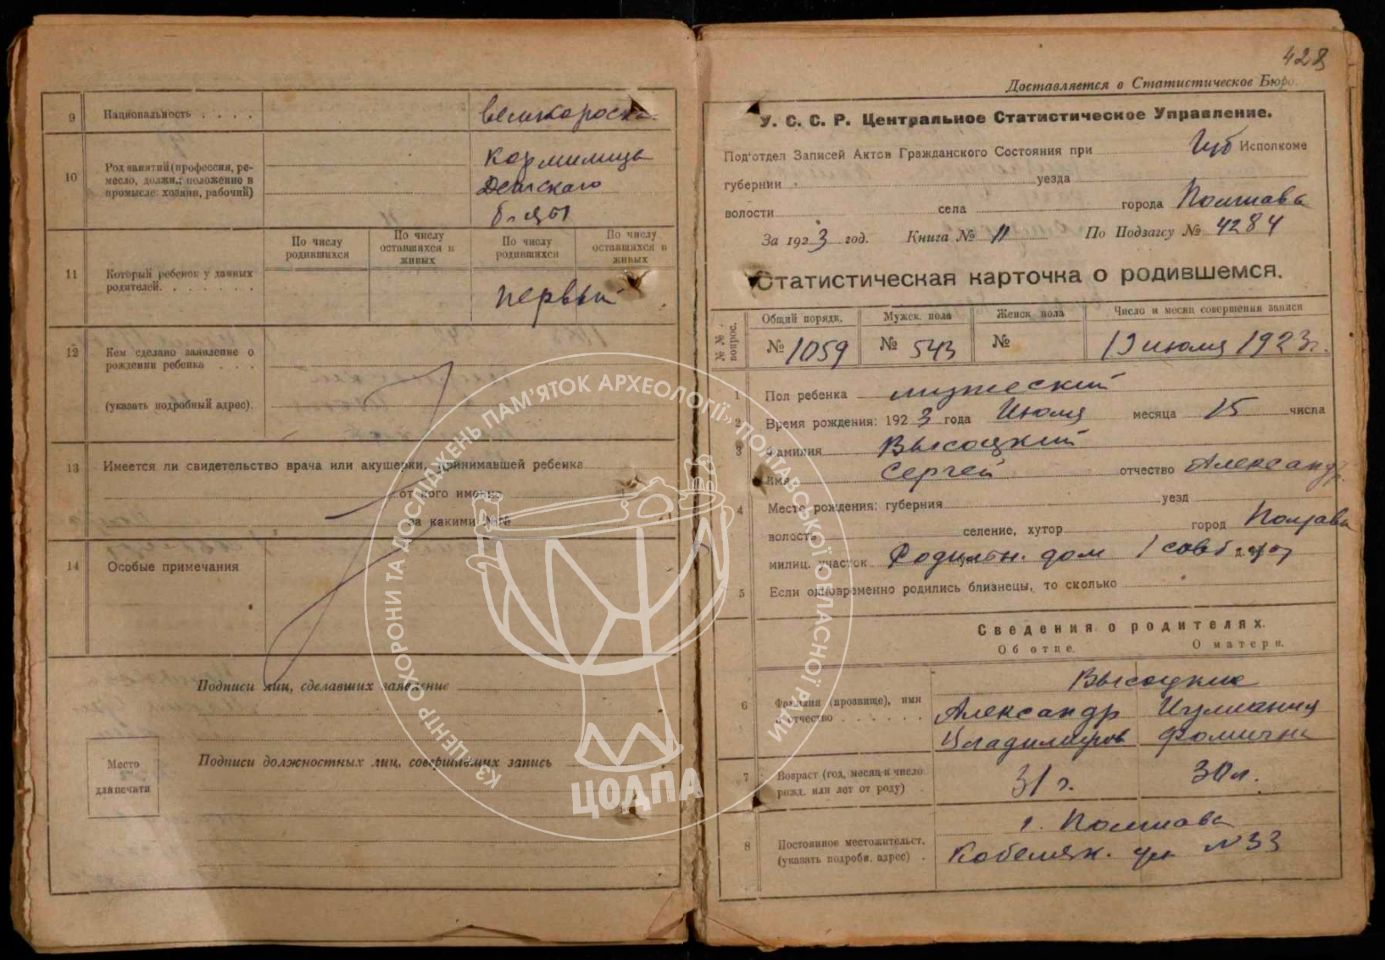 9 Национальность . . . . великоросска
10 Род занятий (профессия, ре-
месло, должн.; положение в
промысле: хозяин, рабочий)
Кормилица
Детского
По числу родившихся
По числу оставшихся в живых
По числу родившихся
По числу оставшихся в живых
11 Который ребенок у данных
родителей. . . . . . . .
первый
12 Кем сделано заявление о
рождении ребенка . . .
(указать подробный адрес).
13 Имеется ли свидетельство врача или акушерки, принимавшей ребенка
от кого именно
за каким №
14 Особые примечания
Подписи лиц, сделавших заявление
Место
для печати
Подписи должностных лиц, совершивших запись
428
Доставляется в Статистическое Бюро.
У. С. С. Р. Центральное Статистическое Управление.
Под'отдел Записей Актов Гражданского Состояния при Губ Исполкоме
губернии уезда
волости села города Полтава
За 1923 год. Книга № 11 По Подзагсу № 4284
Статистическая карточка о родившемся.
№ № вопрос.
Общий порядк. Мужск. пола Женск. пола Число и месяц совершения записи
№ 1059 № 543 № 19 июля 1923 г.
1 Пол ребенка мужеский
2 Время рождения: 1923 года Июля месяца 15 числа
3 Фамилия Высоцкий
имя Сергей отчество Александр.
4 Место рождения: губерния уезд
волость селение, хутор город Полтава
милиц. участок Родильн. дом 1 совб
5 Если одновременно родились близнецы, то сколько
Сведения о родителях.
Об отце. О матери.
Высоцкие
6 Фамилия (прозвище), имя
отчество . . . . . .
Александр
Владимиров
Фомична
7 Возраст (год, месяц и число
рожд. или лет от роду)
31 г. 30 л.
8 Постоянное местожительст.
(указать подробн. адрес) .
г. Полтава
Кобеляк. ул №33
КЗ "ЦЕНТР ОХОРОНИ ТА ДОСЛІДЖЕНЬ ПАМ'ЯТОК АРХЕОЛОГІЇ" ПОЛТАВСЬКОЇ ОБЛАСНОЇ РАДИ
ЦОДПА